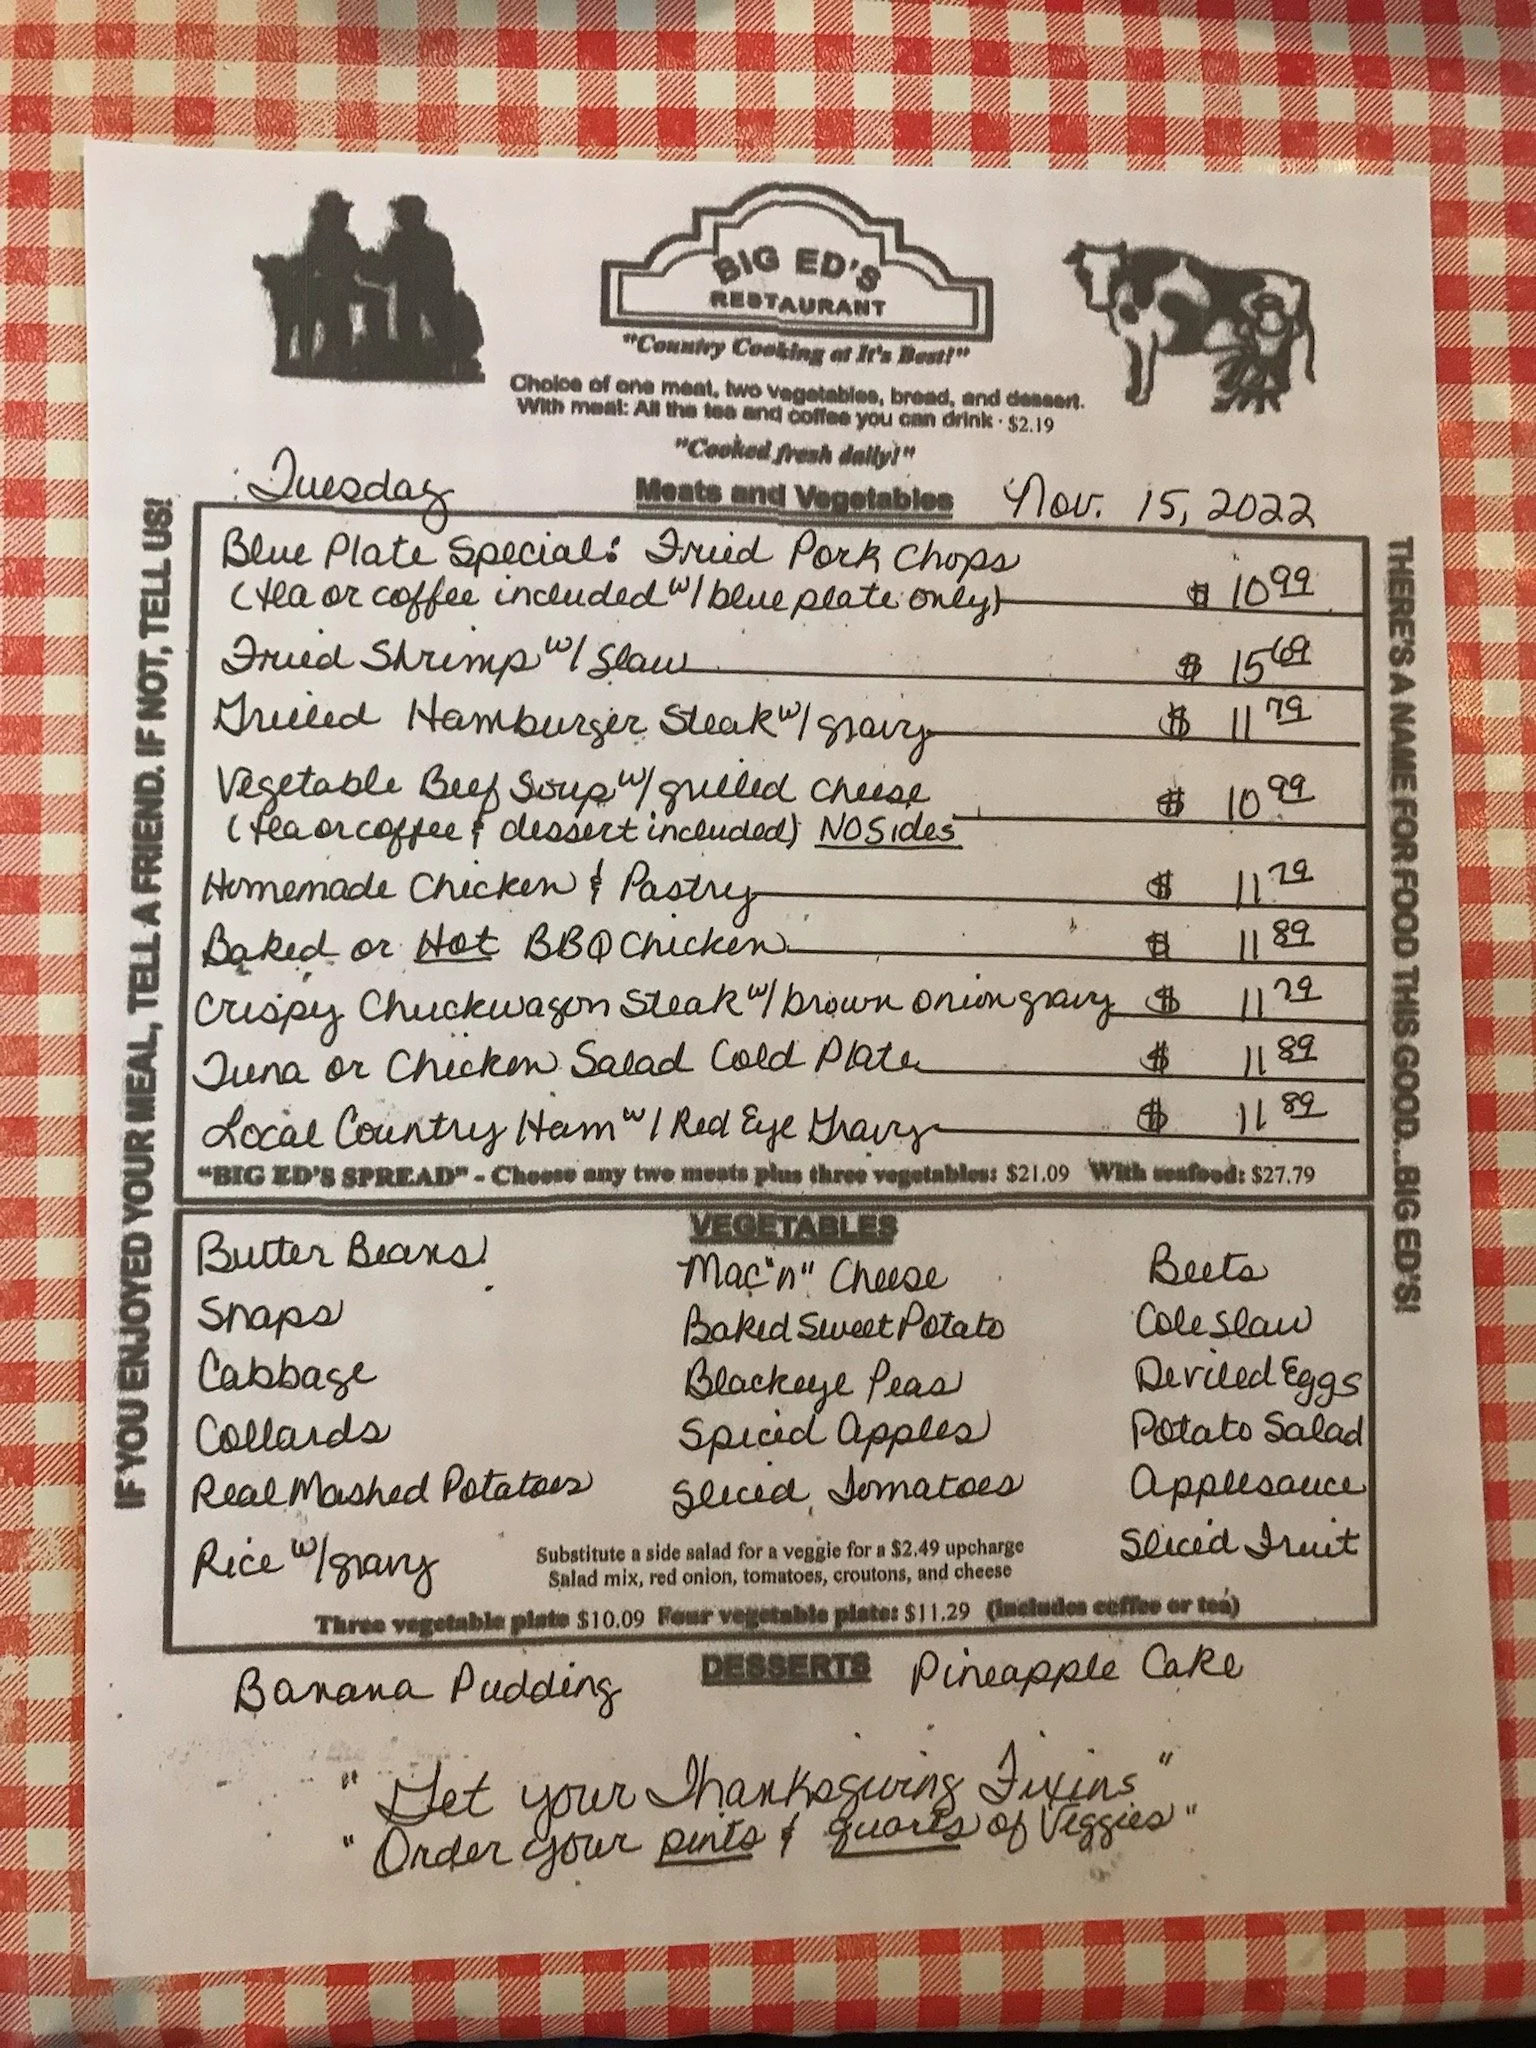 BIG ED'S
RESTAURANT
"Country Cooking at It's Best!"
Choice of one meat, two vegetables, bread, and dessert.
With meal: All the tea and coffee you can drink · $2.19
"Cooked fresh daily!"
Tuesday
Meats and Vegetables
Nov. 15, 2022
IF YOU ENJOYED YOUR MEAL, TELL A FRIEND. IF NOT, TELL US!
Blue Plate Special: Fried Pork Chops
(tea or coffee included w/ blue plate only) $ 10.99
Fried Shrimp w/ Slaw $ 15.69
Grilled Hamburger Steak w/ gravy $ 11.79
Vegetable Beef Soup w/ grilled cheese $ 10.99
(tea or coffee & dessert included) NO Sides
Homemade Chicken & Pastry $ 11.79
Baked or Hot BBQ Chicken $ 11.89
Crispy Chuckwagon Steak w/ brown onion gravy $ 11.79
Tuna or Chicken Salad Cold Plate $ 11.89
Local Country Ham w/ Red Eye Gravy $ 11.89
"BIG ED'S SPREAD" - Choose any two meats plus three vegetables: $21.09 With seafood: $27.79
THERE'S A NAME FOR FOOD THIS GOOD...BIG ED'S!
VEGETABLES
Butter Beans
Snaps
Cabbage
Collards
Real Mashed Potatoes
Rice w/ gravy
Mac "n" Cheese
Baked Sweet Potato
Blackeye Peas
Spiced Apples
Sliced Tomatoes
Beets
Cole Slaw
Deviled Eggs
Potato Salad
Applesauce
Sliced Fruit
Substitute a side salad for a veggie for a $2.49 upcharge
Salad mix, red onion, tomatoes, croutons, and cheese
Three vegetable plate $10.09 Four vegetable plate: $11.29 (includes coffee or tea)
DESSERTS
Banana Pudding
Pineapple Cake
"Get your Thanksgiving Fixins"
"Order your pints & quarts of Veggies"